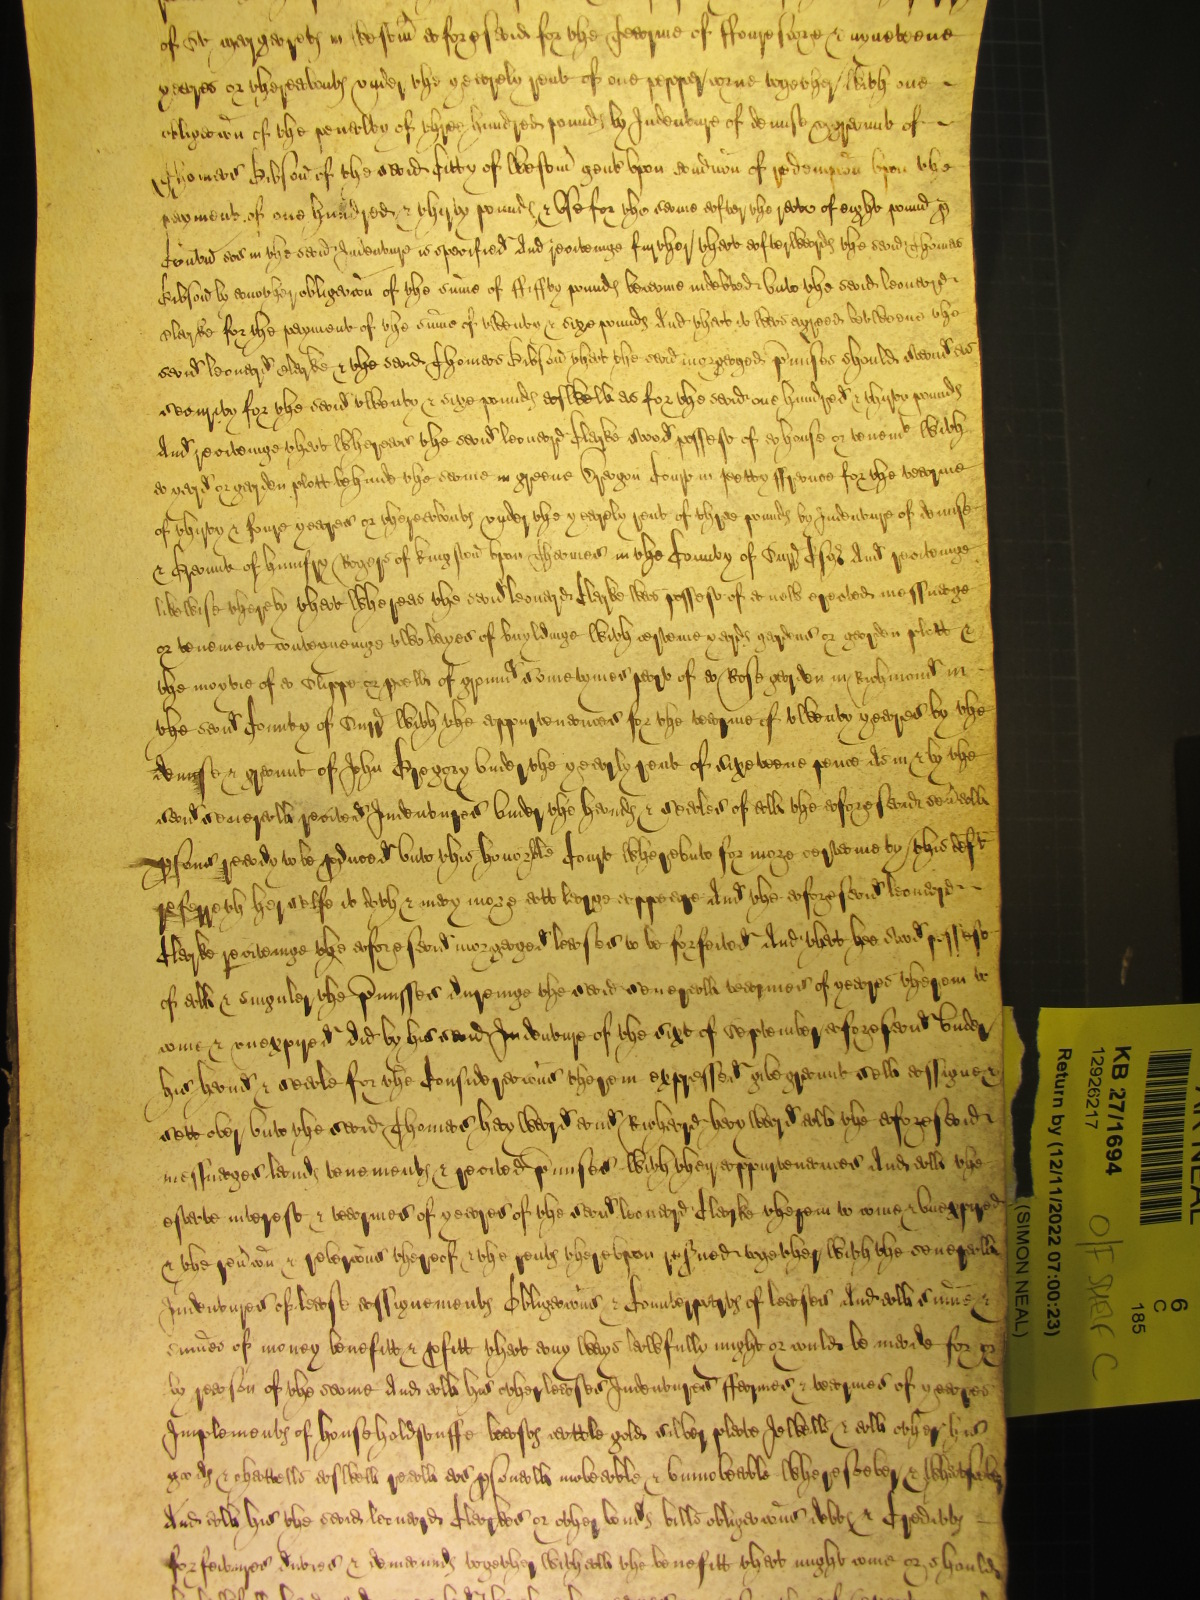 of St Margaretts in Westm̃ aforesaid for the tearme of ffourescore & nyneteene
yeares or thereabouts vnder the yearely rent of one pepper corne together with one
obligac̃on of the penaltey of three hundred pounds by Indenture of demise & graunt of
Thomas Kibson of the said Citty of Westm̃ gent vpon condic̃on of redempc̃on vpon the
payment of one hundred & thirty pounds & Vse for the same after the rate of eight pound p
Centũ as in the said Indenture is specified And reciteinge further that afterwards the said Thomas
Kibson by another obligac̃on of the sum̃e of ffiffty pounds became indebted vnto the said Leonard
Clarke for the payment of the sum̃e of twenty & sixe pounds And that it was agreed betweene the
said Leonard Clarke & the said Thomas Kibson that the said morgaged p̃misses should stand as
security for the said twenty & sixe pounds aswell as for the said one hundred & thirty pounds
And reciteinge that Whereas the said Leonard Clarke stood possest of a house or tenemt with
a yard or garden plott behinde the same in greene Dragon Court in petty ffrance for the tearme
of thirty & foure yeares or thereabouts vnder the yearely rent of three pounds by Indenture of demise
& Graunt of Humfry Rogers of Kingston vpon Thames in the County of Surr Esqr And reciteinge
likewise thereby that Whereas the said Leonard Clarke was possest of a new erected messuage
or tenement conteineinge two bayes of buyldinge with certeine yards gardens or garden plott &
the moytie of a Slippe or p̱cell of ground sometymes part of a Rose garden in Richmond in
the said County of Surr with the appurtenances for the tearme of twenty yeares by the
demise & graunt of John Gregory vnder the yearly rent of sixeteene pence As in & by the
said severall recited Indentures vnder the hands & seales of all the aforesaid sev̄all
p̱sons ready to be p̱duced vnto this honorble Court Wherevnto for more certeinety this deft
referreth her selfe it doth & may more att large appeare And the aforesaid Leonard
Clarke reciteinge the aforesaid morgaged leases to be forfeited And that hee stood possest
of all & singuler the p̃misses dureinge the said severall tearmes of yeares therein to
come & vnexpired did by his said Indenture of the sixt of September aforesaid vnder
his hand & seale for the Considerac̃ons therein expressed give graunt sell assigne &
sett over vnto the said Thomas Hayward and Richard Hayward all the aforesaid
messuages lands tenements & recited p̃misses with their appurtenances And all the
estate interest & tearmes of yeares of the said Leonard Clarke therein to come & vnexpired
& the rev̄c̃on & reverc̃ons thereof & the rents therevpon res̄ved together with the severall
Indentures of lease assignements Obligac̃ons & Counterparts of leases And all sum̃e &
sum̃es of money benefitt & p̱fitt that any ways lawfully might or could be made for or
by reason of the same And all his other leases Indentures ffarmes & tearmes of yeares
Implements of houshold stuffe beasts cattle gold silver plate Jewells & all other his
goods & chattells aswell reall as p̱sonall moveable & vnmoveable wheresoever & whatsoever
And all his the said Leonard Clarkes or other bonds bills obligac̃ons debts & Creditts
forfeitures duties & demaunds together with all the benefitt that might come or should
KB 27/1694
12926217
Return by (12/11/2022 07:00:23)
(SIMON NEAL)
O/F SHELF C
6
C
185